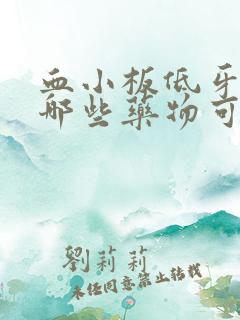 血小板低牙
哪些药物可
劉莉莉
未经同意禁止转载